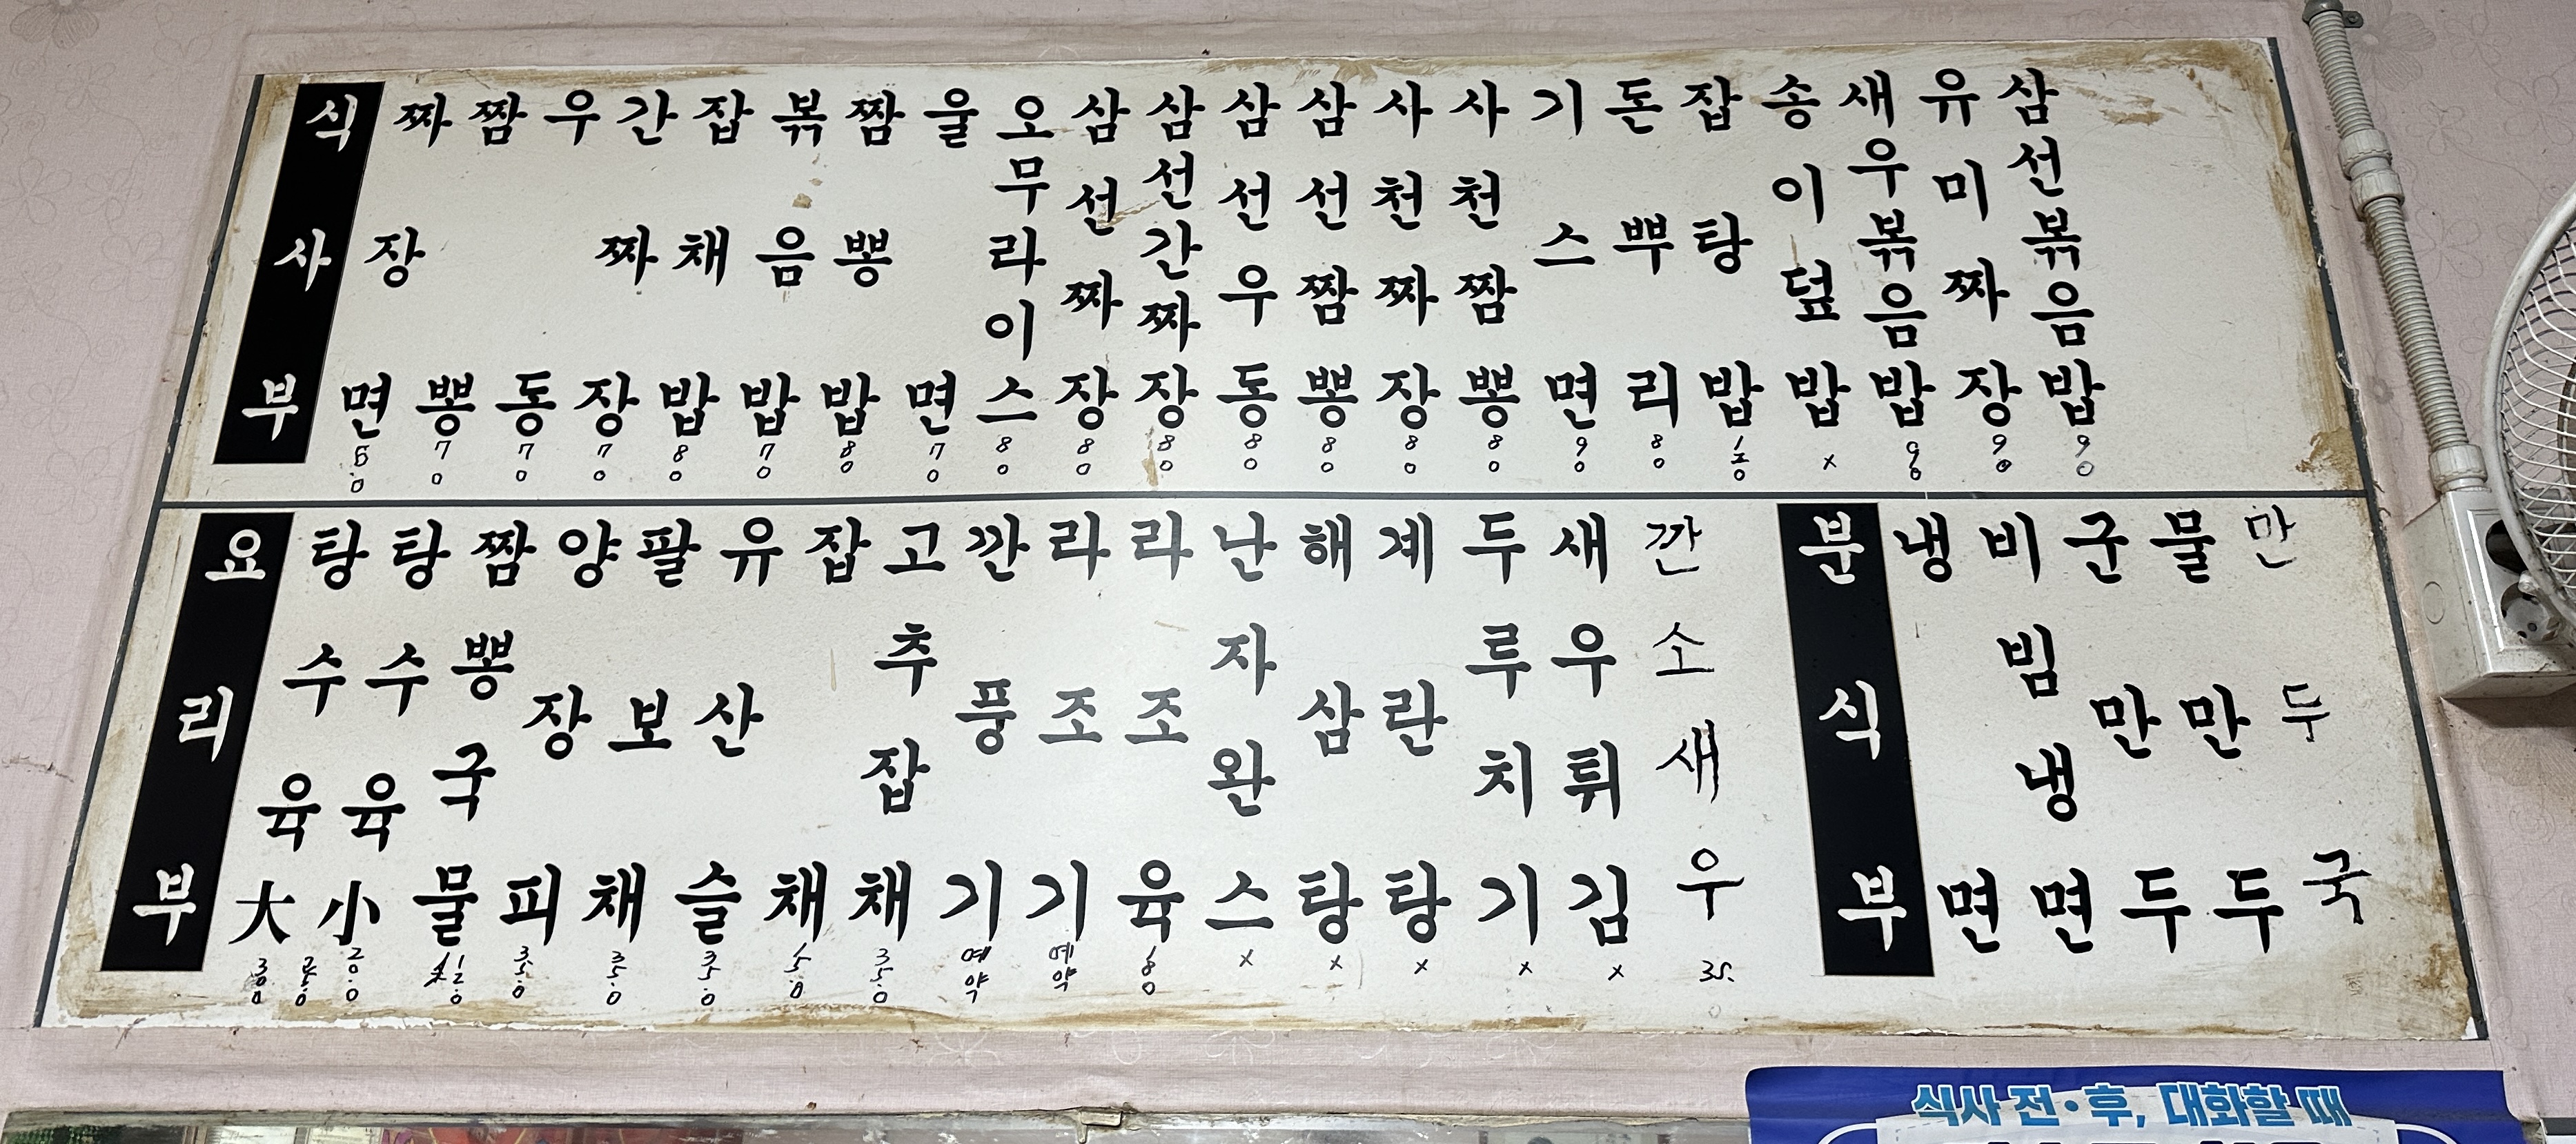 식사부
짜장면 60
짬뽕 70
우동 70
간짜장 70
잡채밥 80
볶음밥 70
짬뽕밥 80
울면 70
오무라이스 80
삼선짜장 80
삼선간짜장 80
삼선우동 80
삼선짬뽕 80
사천짜장 80
사천짬뽕 80
기스면 90
돈뿌리 80
잡탕밥 120
송이덮밥 x
새우볶음밥 90
유미짜장 90
삼선볶음밥 90
요리부
탕수육 大 300 250
탕수육 小 20.0
짬뽕국물 12.0
양장피 35.0
팔보채 35.0
유산슬 35.0
잡채 15.0
고추잡채 35.0
깐풍기 예약
라조기 예약
라조육 180
난자완스 x
해삼탕 x
계란탕 x
두루치기 x
새우튀김 x
깐소새우 35.0
분식부
냉면
비빔냉면
군만두
물만두
만두국
식사 전·후, 대화할 때